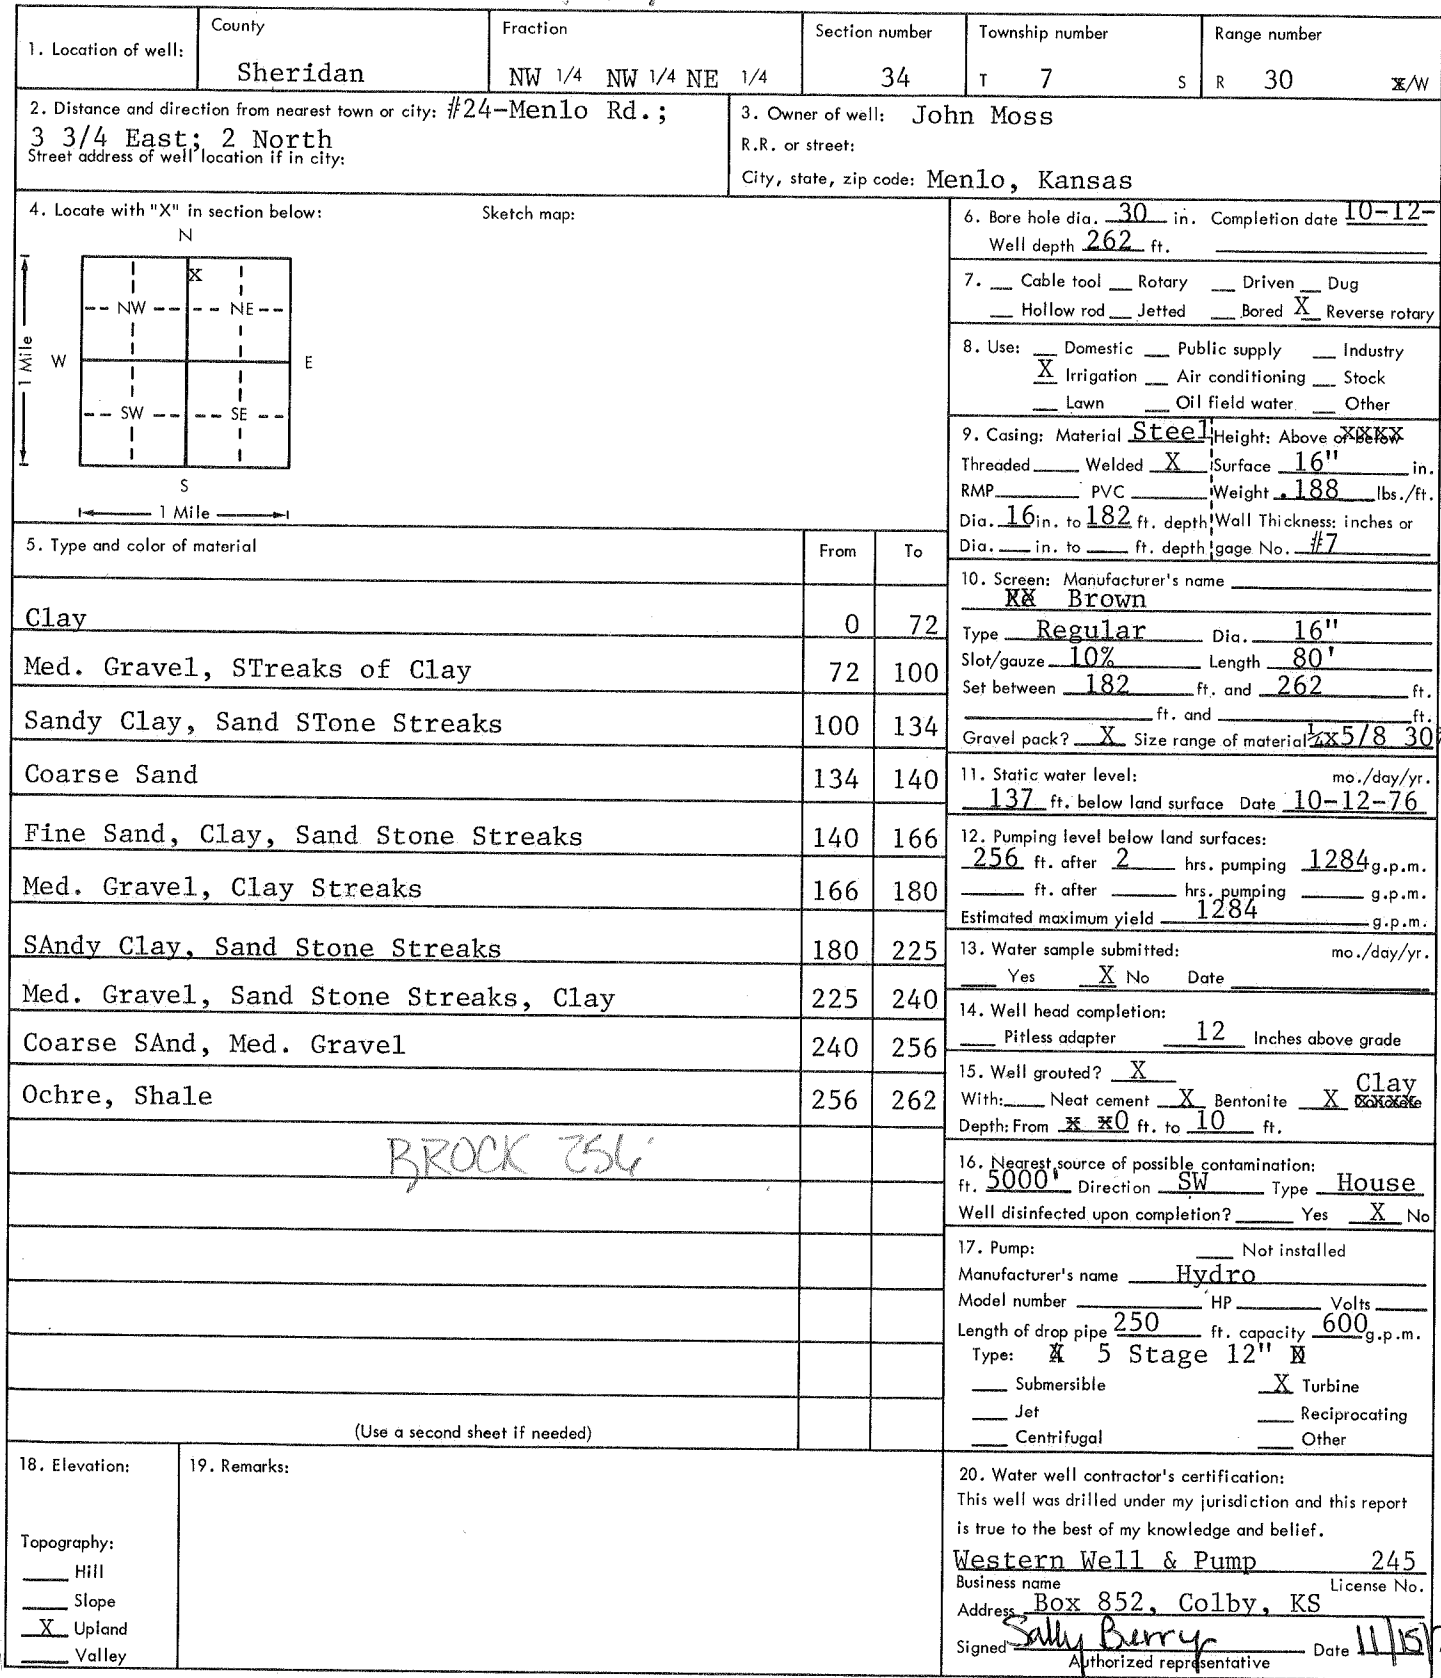 County
Fraction
Section number
Township number
Range number
1. Location of well:
Sheridan
NW 1/4 NW 1/4 NE 1/4
34
T 7 S
R 30 E/W
2. Distance and direction from nearest town or city: #24-Menlo Rd.;
3 3/4 East; 2 North
Street address of well location if in city:
3. Owner of well: John Moss
R.R. or street:
City, state, zip code: Menlo, Kansas
4. Locate with "X" in section below:
Sketch map:
N
X
NW NE
W E
SW SE
S
1 Mile
1 Mile
5. Type and color of material From To
Clay 0 72
Med. Gravel, STreaks of Clay 72 100
Sandy Clay, Sand STone Streaks 100 134
Coarse Sand 134 140
Fine Sand, Clay, Sand Stone Streaks 140 166
Med. Gravel, Clay Streaks 166 180
SAndy Clay, Sand Stone Streaks 180 225
Med. Gravel, Sand Stone Streaks, Clay 225 240
Coarse SAnd, Med. Gravel 240 256
Ochre, Shale 256 262
BROCK 256'
(Use a second sheet if needed)
6. Bore hole dia. 30 in. Completion date 10-12-
Well depth 262 ft.
7. Cable tool Rotary Driven Dug
Hollow rod Jetted Bored X Reverse rotary
8. Use: Domestic Public supply Industry
X Irrigation Air conditioning Stock
Lawn Oil field water Other
9. Casing: Material Steel Height: Above or below
Threaded Welded X Surface 16" in.
RMP PVC Weight .188 lbs./ft.
Dia. 16 in. to 182 ft. depth Wall Thickness: inches or
Dia. in. to ft. depth gage No. #7
10. Screen: Manufacturer's name
Brown
Type Regular Dia. 16"
Slot/gauze 10% Length 80'
Set between 182 ft. and 262 ft.
ft. and ft.
Gravel pack? X Size range of material 1/4x5/8 30
11. Static water level: mo./day/yr.
137 ft. below land surface Date 10-12-76
12. Pumping level below land surfaces:
256 ft. after 2 hrs. pumping 1284 g.p.m.
ft. after hrs. pumping g.p.m.
Estimated maximum yield 1284 g.p.m.
13. Water sample submitted: mo./day/yr.
Yes X No Date
14. Well head completion:
Pitless adapter 12 Inches above grade
15. Well grouted? X
Clay
With: Neat cement X Bentonite X Concrete
Depth: From 0 ft. to 10 ft.
16. Nearest source of possible contamination:
ft. 5000' Direction SW Type House
Well disinfected upon completion? Yes X No
17. Pump: Not installed
Manufacturer's name Hydro
Model number HP Volts
Length of drop pipe 250 ft. capacity 600 g.p.m.
Type: 5 Stage 12"
Submersible X Turbine
Jet Reciprocating
Centrifugal Other
18. Elevation:
Topography:
Hill
Slope
X Upland
Valley
19. Remarks:
20. Water well contractor's certification:
This well was drilled under my jurisdiction and this report
is true to the best of my knowledge and belief.
Western Well & Pump 245
Business name License No.
Address Box 852, Colby, KS
Signed Sally Berry Date 11/15/
Authorized representative